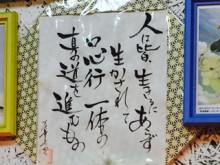 人は皆生きるにあらず
生かされて
口心行一体の
真の道を進むもの